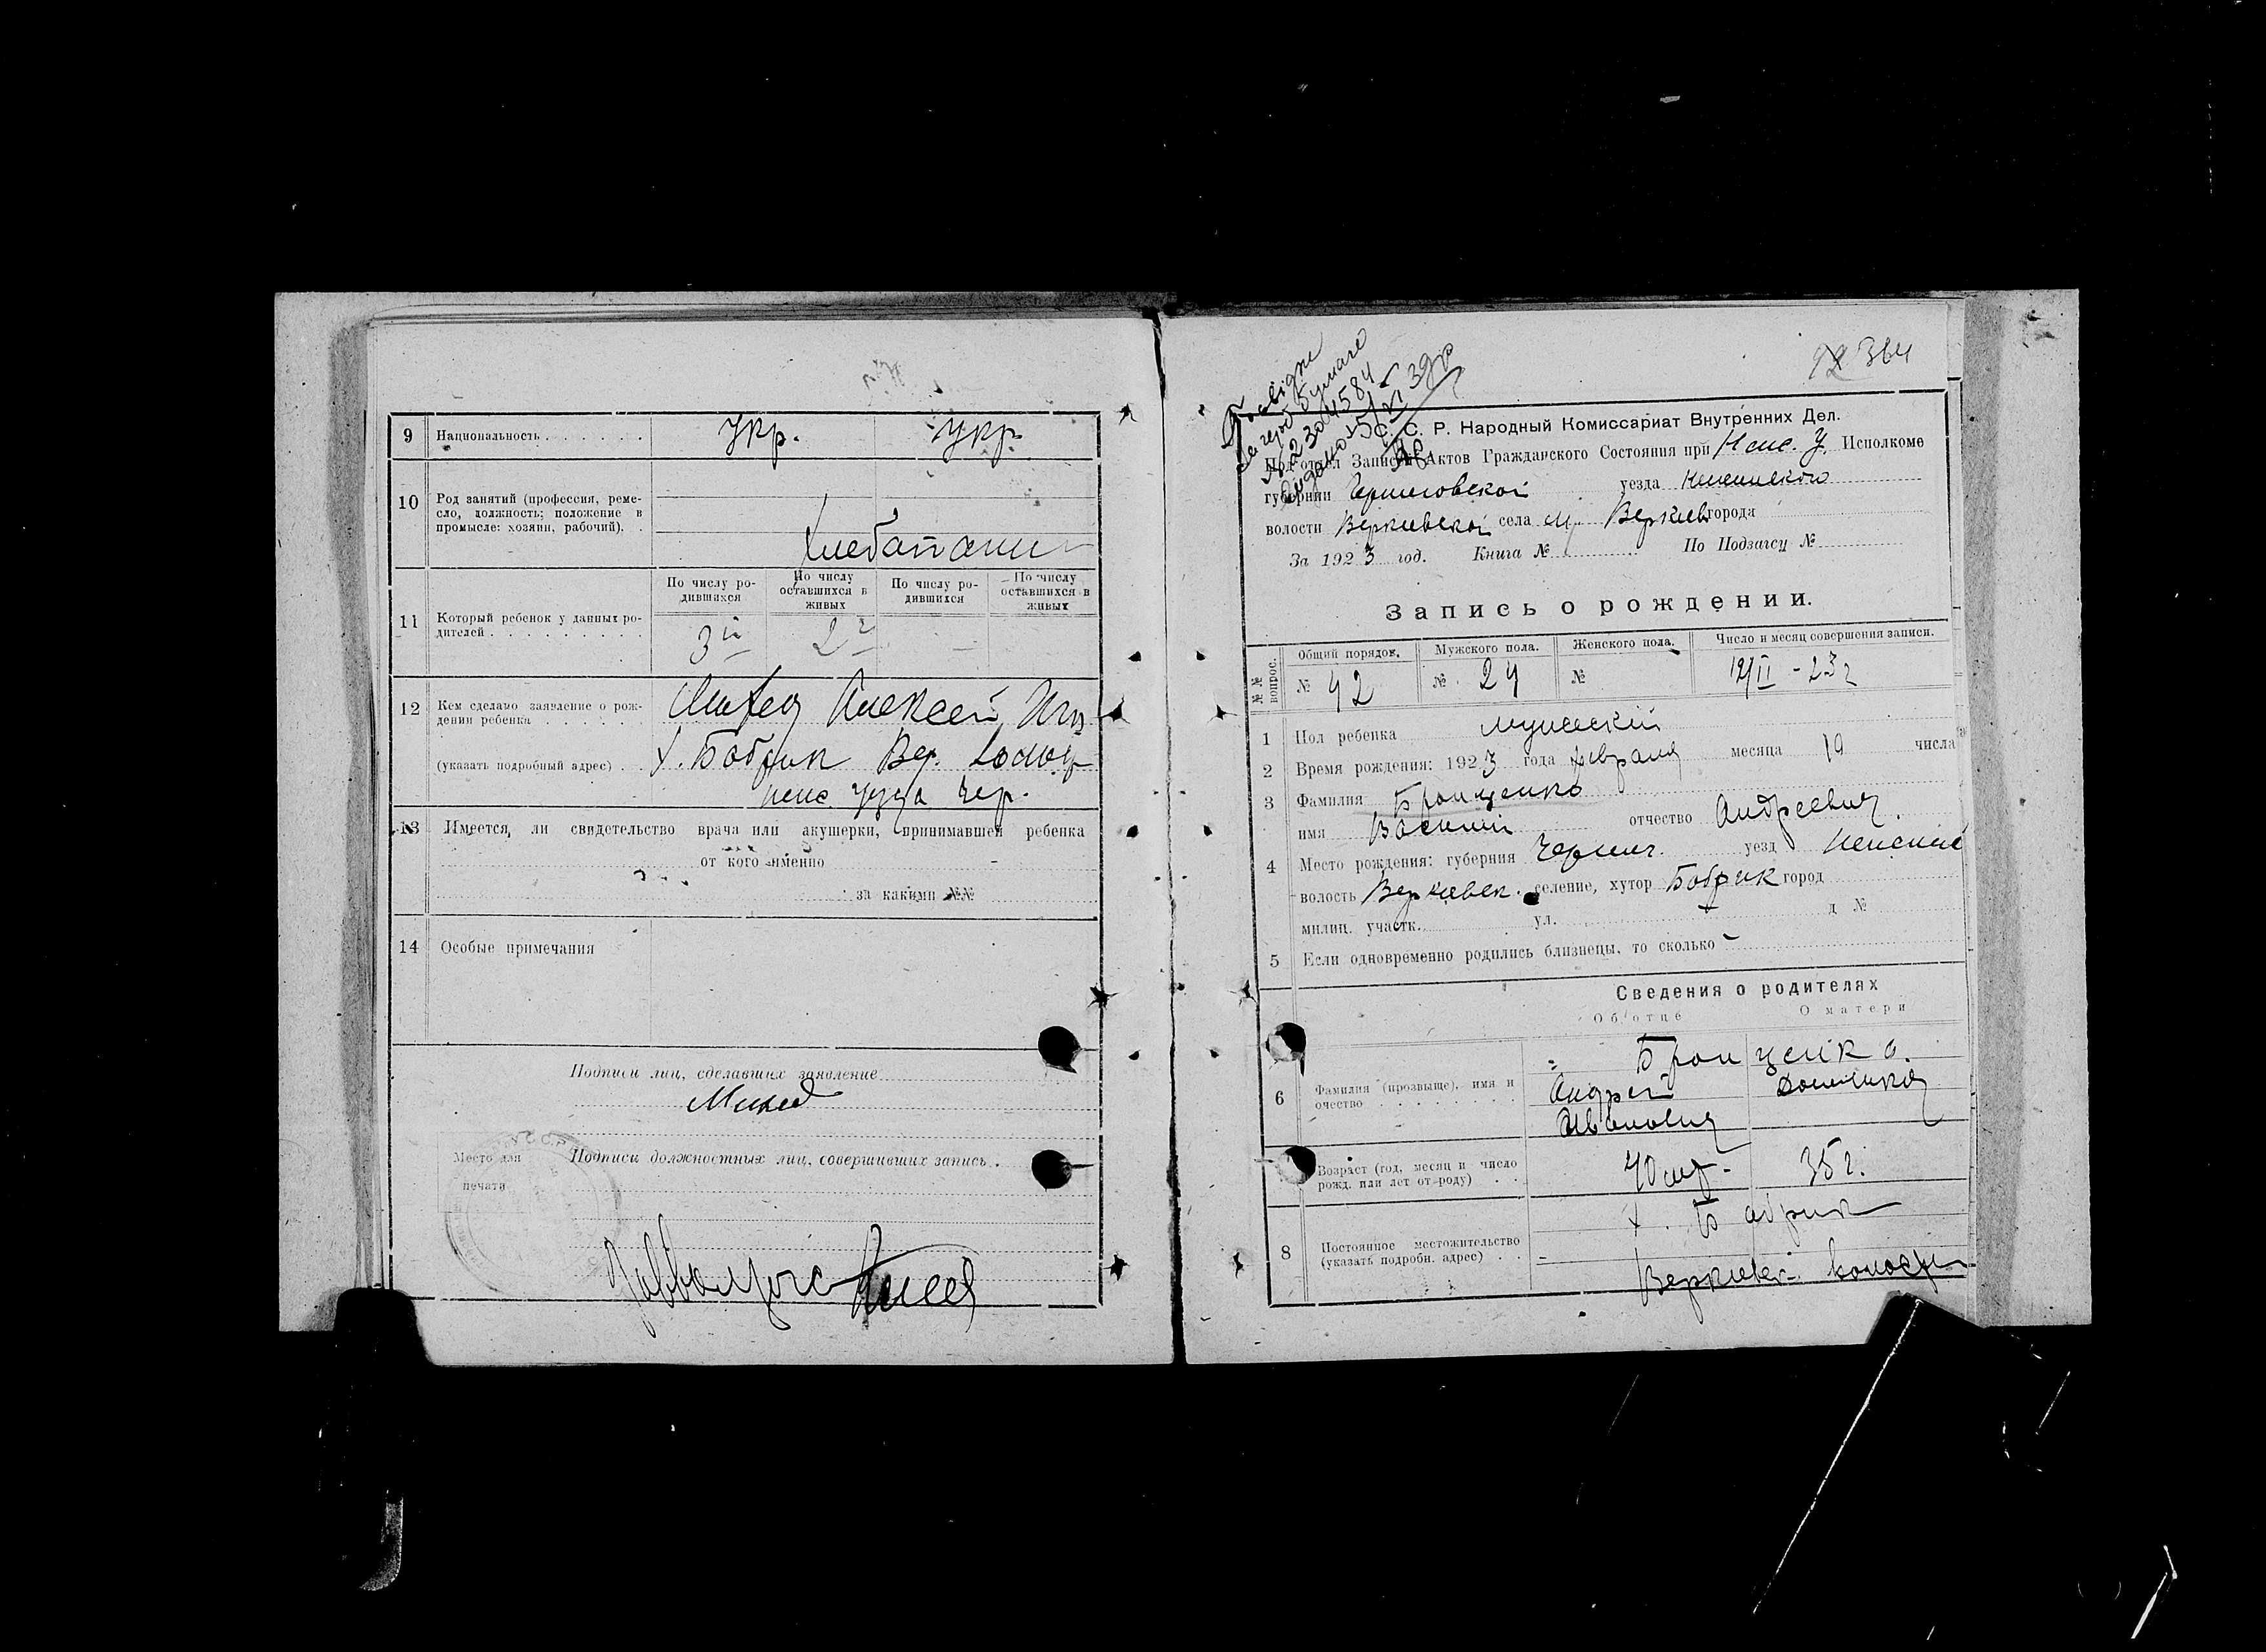 9 Национальность . . . . . . укр. укр.
10 Род занятий (профессия, реме-
сло, должность; положение в
промысле: хозяин, рабочий). .
хлебопашн
11 Который ребенок у данных ро-
дителей . . . . . . . . .
По числу ро-
дившихся
По числу
оставшихся в
живых
По числу ро-
дившихся
По числу
оставшихся в
живых
3й 2й
12 Кем сделано заявление о рож-
дении ребенка . . . . . .
Алексей
(указать подробный адрес) . . х. Бобрик Вер. волос
неж. уезда чер.
13 Имеется, ли свидетельство врача или акушерки, принимавшей ребенка
от кого именно
за какими №№
14 Особые примечания
Подписи лиц, сделавших заявление
Место для
печати
Подписи должностных лиц, совершивших запись.
92 364
№ 2304584
С. С. Р. Народный Комиссариат Внутренних Дел.
Под'отдел Записи Актов Гражданского Состояния при Неж. У. Исполкоме
губернии Черниговской уезда Нежинского
волости Веркиевской села м. Веркиев города
За 1923 год. Книга № По Подзагсу №
Запись о рождении.
№№ вопрос.
Общий порядок. Мужского пола. Женского пола. Число и месяц совершения записи.
№ 42 № 24 № 19/II - 23 г
1 Пол ребенка мужеский
2 Время рождения: 1923 года февраля месяца 19 числа
3 Фамилия Бронценко
имя Василий отчество Андреевич
4 Место рождения: губерния Черниг. уезд Нежинс
волость Веркиевск. селение, хутор Бобрик город
милиц. участк. ул. д №
5 Если одновременно родились близнецы, то сколько -
Сведения о родителях
Об отце О матери
6 Фамилия (прозвище), имя и
очество . . . . . . . .
Бронценко.
Андрей
Иванович
Возраст (год, месяц и число
рожд. или лет от-роду) . .
40 лет. 35 г.
8 Постоянное местожительство
(указать подробн. адрес) . .
х. Бобрик
Веркиев. волости